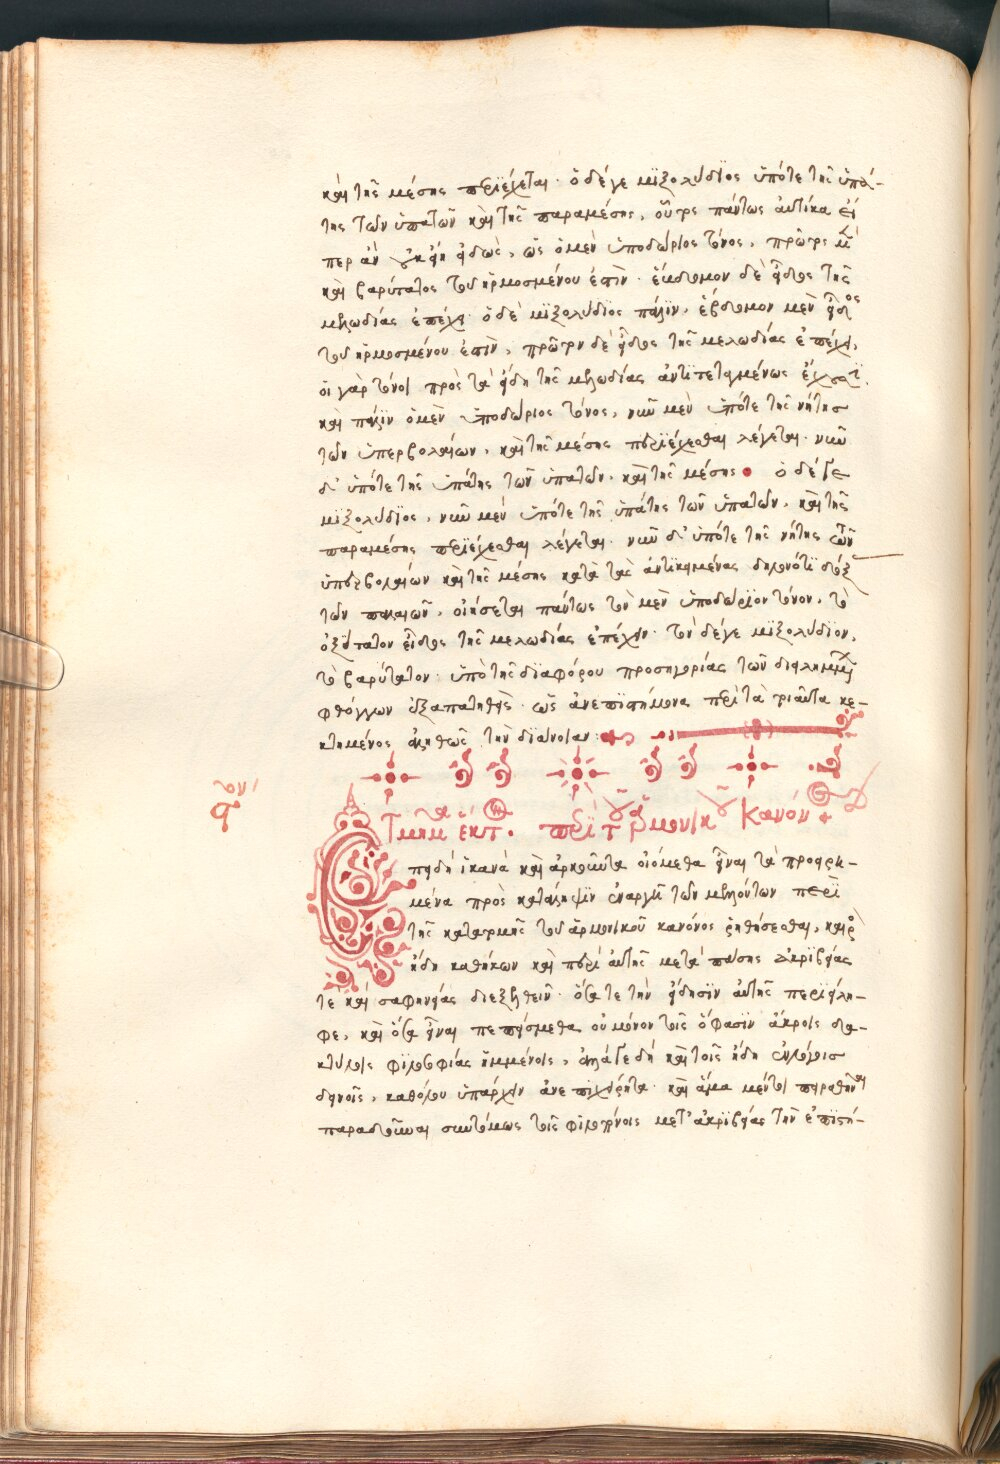 καὶ τῆς μέσης περιέχεται· ὁ δέ γε μιξολύδιος ὑπό τε τῆς ὑπά-
της τῶν ὑπατῶν καὶ τῆς παραμέσης, οὗτος πάντως αὐτίκα
περ ἂν ὡς ὁ μὲν ὑποδώριος τόνος, πρῶτος μὲν
καὶ βαρύτατος τοῦ ἡρμοσμένου ἐστὶν· ἕβδομον δὲ εἶδος τῆς
μελωδίας ἐπέχει· ὁ δὲ μιξολύδιος πάλιν, ἕβδομον μὲν εἶδος
τοῦ ἡρμοσμένου ἐστὶν, πρῶτον δὲ εἶδος τῆς μελωδίας ἐπέχει,
οἱ γὰρ τόνοι πρὸς τὰ εἴδη τῆς μελωδίας ἀντιτεταγμένως
καὶ πάλιν ὁ μὲν ὑποδώριος τόνος, νῦν μὲν ὑπό τε τῆς νήτης
τῶν ὑπερβολαίων, καὶ τῆς μέσης περιέχεσθαι λέγεται· νῦν
δ' ὑπό τε τῆς ὑπάτης τῶν ὑπατῶν, καὶ τῆς μέσης· ὁ δέ γε
μιξολύδιος, νῦν μὲν ὑπό τε τῆς ὑπάτης τῶν ὑπατῶν, καὶ τῆς
παραμέσης περιέχεσθαι λέγεται· νῦν δ' ὑπό τε τῆς νήτης τῶν
ὑπερβολαίων καὶ τῆς μέσης κατὰ τὰς ἀντικειμένας δηλονότι δόξας
τῶν παλαιῶν, οἰήσεται πάντως τὸν μὲν ὑποδώριον τόνον, τὸ
ὀξύτατον εἶδος τῆς μελωδίας ἐπέχειν· τὸν δέ γε μιξολύδιον,
τὸ βαρύτατον· ὑπὸ τῆς διαφόρου προσηγορίας τῶν διειλημμένων
φθόγγων ἐξαπατηθεὶς· ὡς ἀνεπιστήμονα περὶ τὰ τοιαῦτα κε-
κτημένος ἀληθῶς τὴν διάνοιαν:
Τμῆμα ἕκτον· περὶ τοῦ ἁρμονικοῦ κανόνος
Ἐπειδὴ ἱκανὰ καὶ ἀρκοῦντα οἰόμεθα εἶναι τὰ προειρη-
μένα πρὸς κατάληψιν ἐναργῆ τῶν μελλόντων περὶ
τῆς κατατομῆς τοῦ ἁρμονικοῦ κανόνος ῥηθήσεσθαι, καιρὸς
ἤδη καθήκων καὶ περὶ αὐτῆς μετὰ πάσης ἀκριβείας
τε καὶ σαφηνείας διεξελθεῖν· ὅσα τε τὴν εἴδησιν αὐτῆς περιείλη-
φε, καὶ ὅσα εἶναι πεπείσμεθα οὐ μόνον τοῖς ὅφασιν ἄκροις δα-
κτύλοις φιλοσοφίας ἡμμένοις, ἀλλά γε δὴ καὶ τοῖς ἤδη ἐλλογίμοις
δεινοῖς, καθόλου ὑπάρχειν ἀνεπιχείρητα· καὶ ἅμα μέντοι πειραθῆναι
παραδοῦναι συντόμως τοῖς φιλομαθέσι μετ' ἀκριβείας τὴν ἐπιστή-